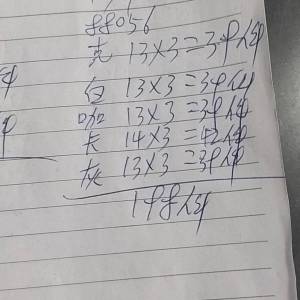 88056
克 13×3=39件
白 13×3=39件
咖 13×3=39件
卡 14×3=42件
灰 13×3=39件
198件